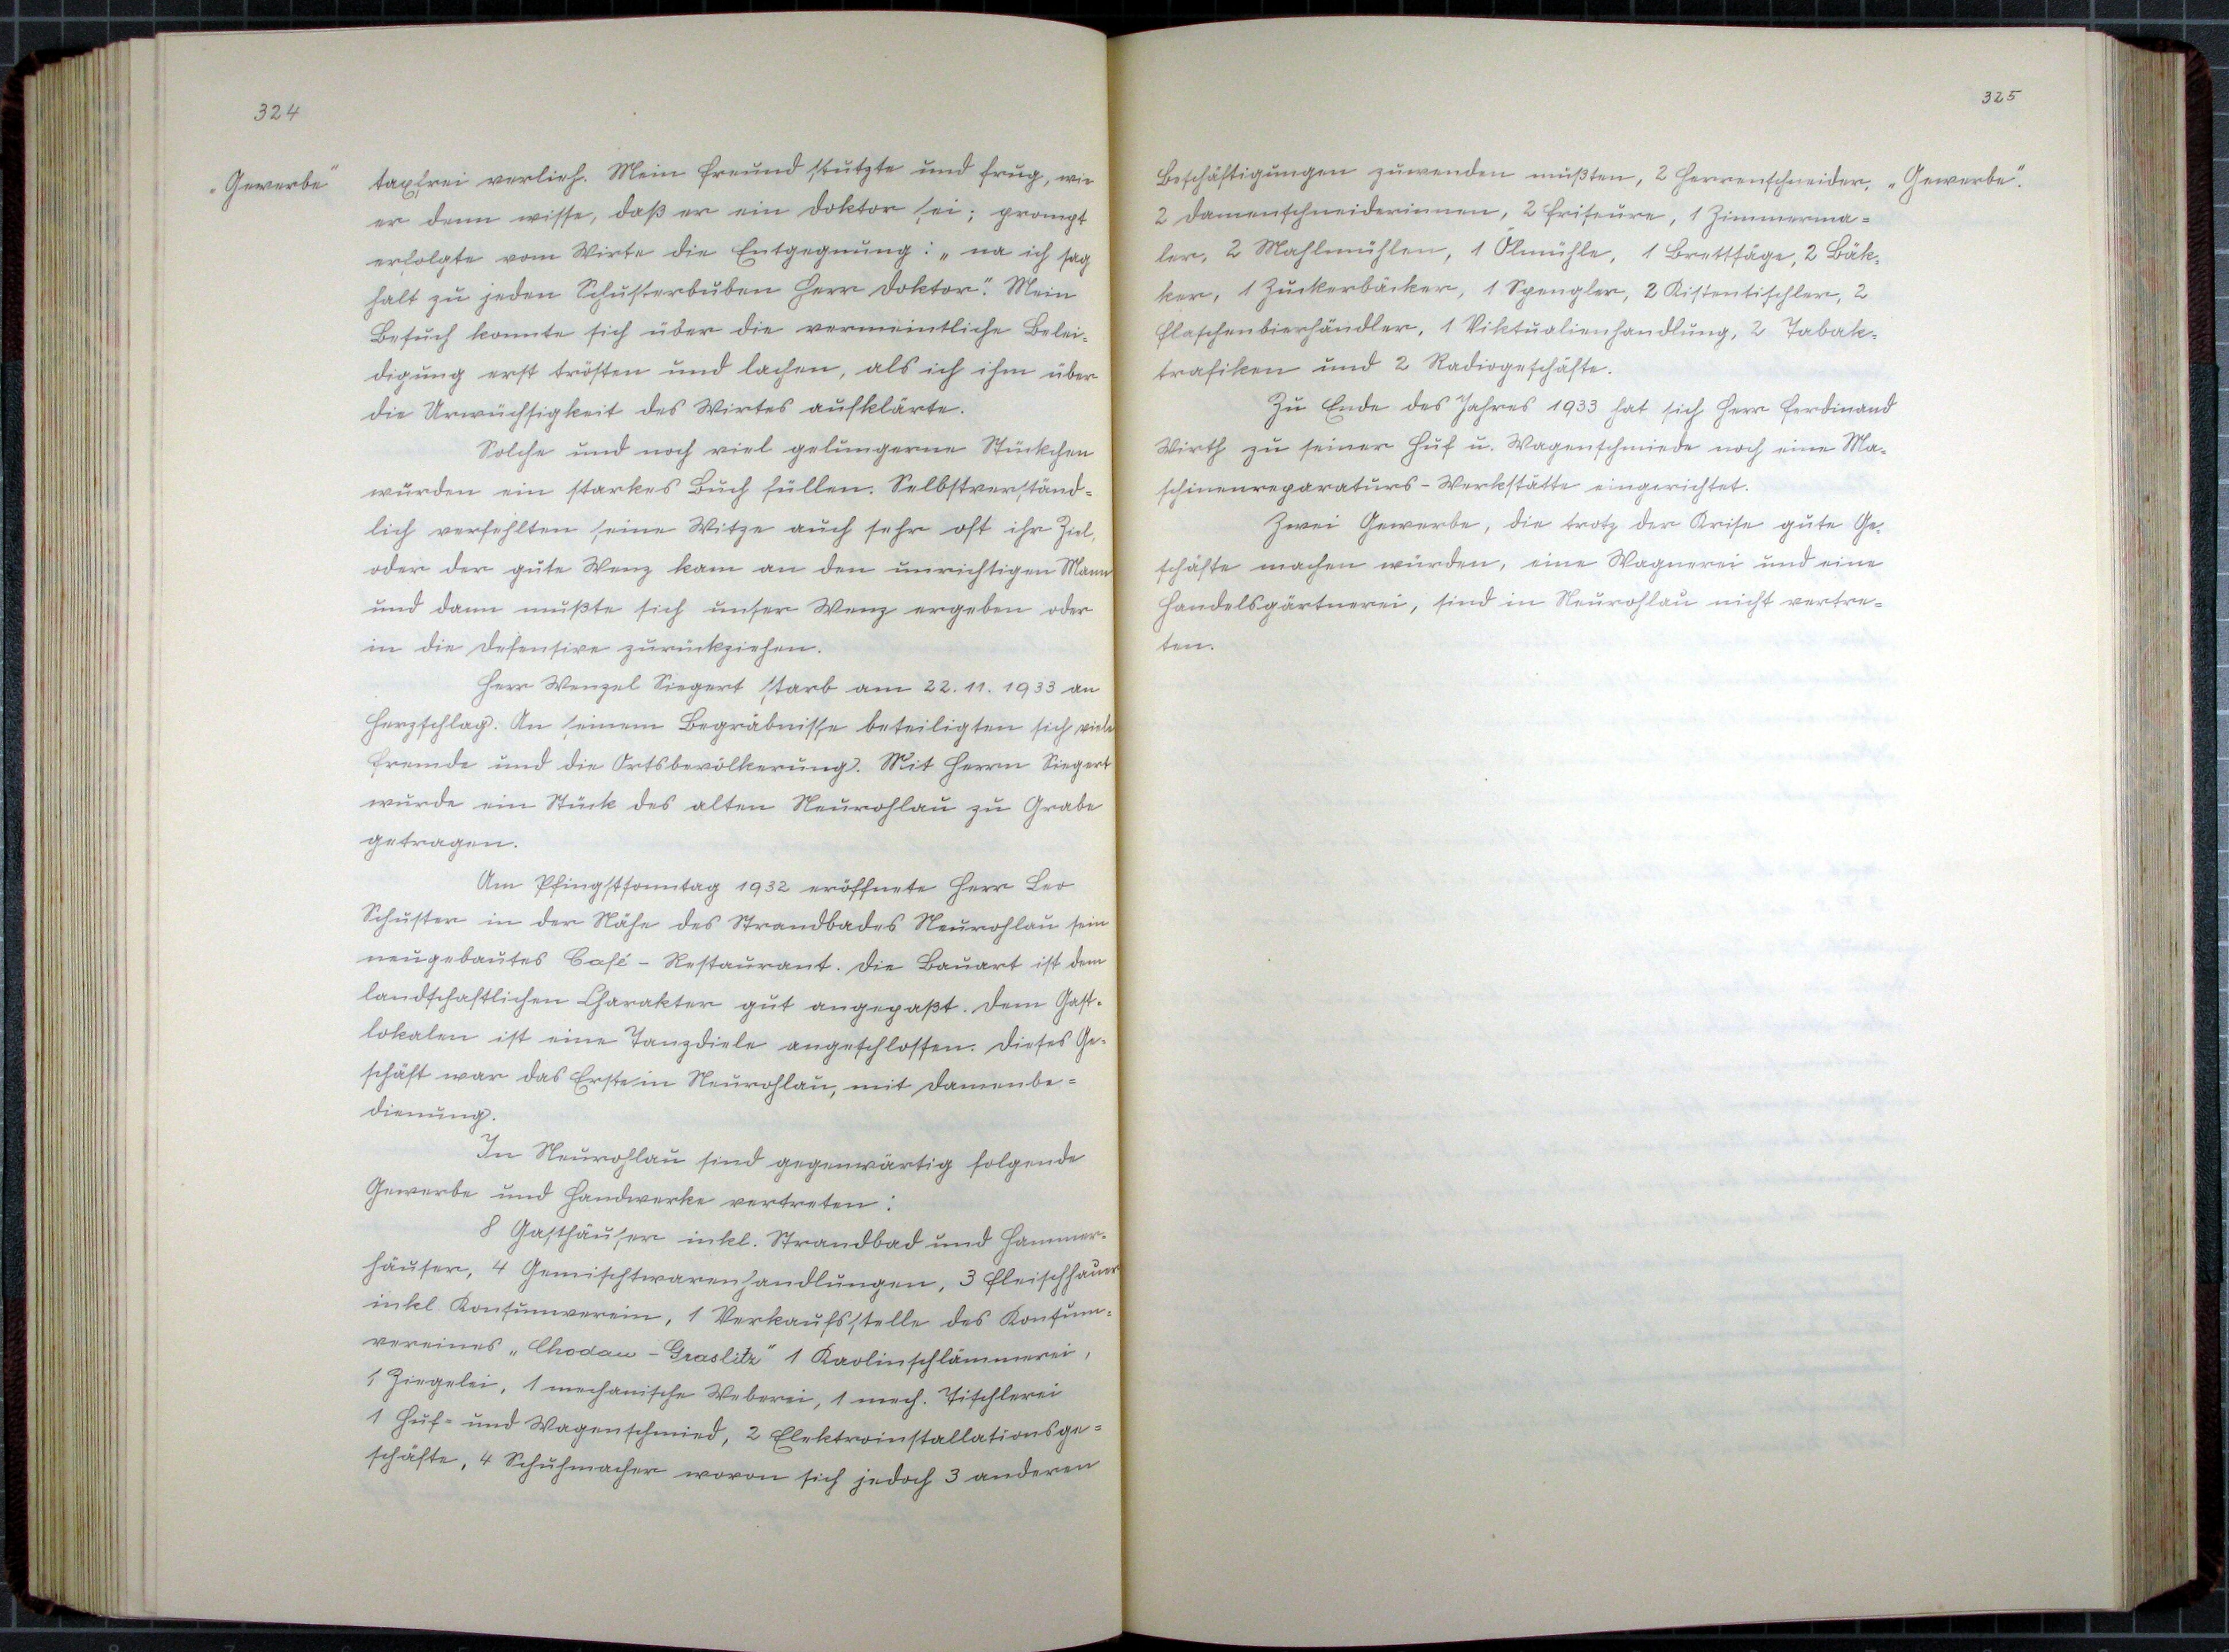 324
„Gewerbe"
taxfrei verlieh. Mein Freund stutzte und frug, wie
er denn wisse, daß er ein Doktor sei; prompt
erfolgte vom Wirte die Entgegnung: „na ich sag
halt zu jeden Schusterbuben Herr Doktor". Mein
Besuch konnte sich über die vermeintliche Belei-
digung erst trösten und lachen, als ich ihm über
die Urwüchsigkeit des Wirtes aufklärte.
Solche und noch viel gelungerne Stückchen
würden ein starkes Buch füllen. Selbstverständ-
lich verfehlten seine Witze auch sehr oft ihr Ziel,
oder der gute Wenz kam an den unrichtigen Mann
und dann mußte sich unser Wenz ergeben oder
in die Defensive zurückziehen.
Herr Wenzel Siegert starb am 22.11.1933 an
Herzschlag. An seinem Begräbnisse beteiligten sich viele
Fremde und die Ortsbevölkerung. Mit Herrn Siegert
wurde ein Stück des alten Neurohlau zu Grabe
getragen.
Am Pfingstsonntag 1932 eröffnete Herr Leo
Schuster in der Nähe des Strandbades Neurohlau sein
neugebautes Café-Restaurant. Die Bauart ist dem
landschaftlichen Charakter gut angepaßt. Dem Gast-
lokalen ist eine Tanzdiele angeschlossen. Dieses Ge-
schäft war das Erste in Neurohlau, mit Damenbe-
dienung.
In Neurohlau sind gegenwärtig folgende
Gewerbe und Handwerke vertreten:
8 Gasthäuser inkl. Strandbad und Hammer-
häuser, 4 Gemischtwarenhandlungen, 3 Fleischhauer
inkl. Konsumverein, 1 Verkaufsstelle des Konsum-
vereines „Chodau-Graslitz" 1 Kaolinschlämmerei,
1 Ziegelei, 1 mechanische Weberei, 1 mech. Tischlerei
1 Huf- und Wagenschmied, 2 Elektroinstallationsge-
schäfte, 4 Schuhmacher wovon sich jedoch 3 anderen
325
„Gewerbe".
Beschäftigungen zuwenden mußten, 2 Herrenschneider,
2 Damenschneiderinnen, 2 Friseure, 1 Zimmerma-
ler, 2 Mahlmühlen, 1 Ölmühle, 1 Brettsäge, 2 Bäk-
ker, 1 Zuckerbäcker, 1 Spengler, 2 Kistentischler, 2
Flaschenbierhändler, 1 Viktualienhandlung, 2 Tabak-
trafiken und 2 Radiogeschäfte.
Zu Ende des Jahres 1933 hat sich Herr Ferdinand
Wirth zu seiner Huf u. Wagenschmiede noch eine Ma-
schinenreparaturs-Werkstätte eingerichtet.
Zwei Gewerbe, die trotz der Krise gute Ge-
schäfte machen würden, eine Wagnerei und eine
Handelsgärtnerei, sind in Neurohlau nicht vertre-
ten.